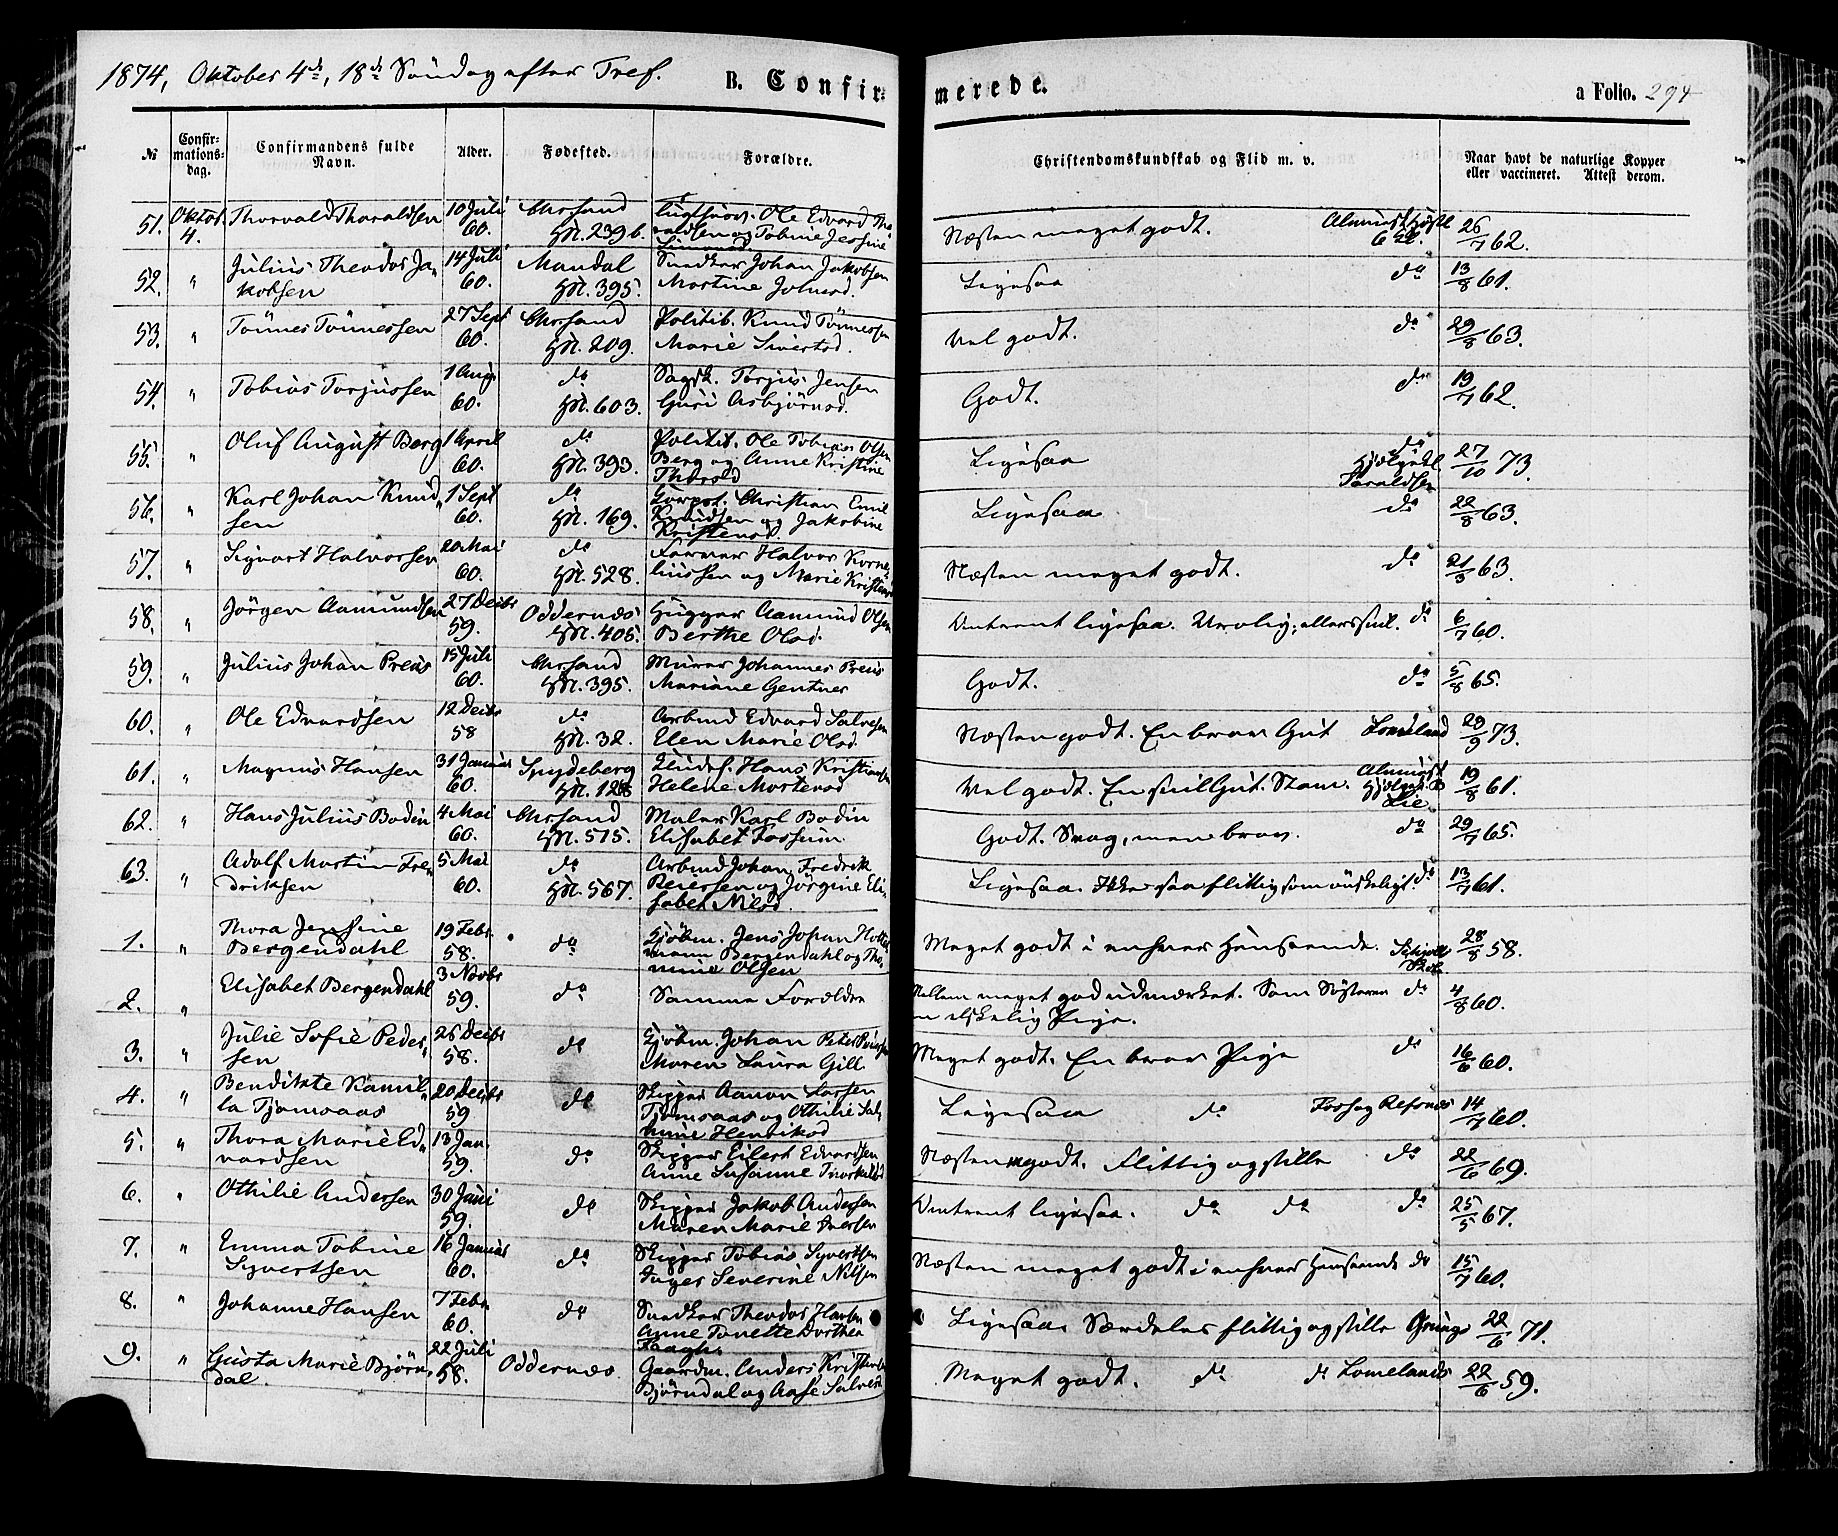 1874, Oktober 4de, 18de Söndag efter Tref.
B. Confirmerede.
a Folio. 294
№ Confirmations-dag. Confirmandens fulde Navn. Alder. Fødested. Forældre. Christendomskundskab og Flid m. v. Naar havt de naturlige Kopper eller vaccineret. Attest derom.
51. Oktob. 4. Thorvald Tharaldsen 10 Juli 60. Chrsand HN. 239 b. Ole Edvard Tharaldsen og Tobine Jessine Næsten meget godt. 26/7 62.
52. " Julius Theodor Jakobsen 14 Juli 60. Mandal HN. 395. Snedker Johan Jakobsen Martine Ligesaa do 13/8 61.
53. " Tönnes Tönnessen 27 Sept 60. Chrsand HN. 209. Politib. Knud Tönnessen Marie Sivertsd. Vel godt. do 29/8 63.
54. " Tobias Torjussen 1 Aug. 60. do HN. 603. Torjus Jensen Guri Asbjörnsd. Godt. do 19/7 62.
55. " Oluf August Berg 1 April 60. do HN. 393. Politib. Ole Tobias Olsen Berg og Anne Kristine Ligesaa do 27/10 73.
56. " Karl Johan Knudsen 1 Sept 60. do HN. 169. Christian Emil Knudsen og Jakobine Kristensd. Ligesaa do 22/8 63.
57. " Sigvart Halvorsen 20 Mai 60. do HN. 528. Farver Halvor Korneliussen og Marie Næsten meget godt. do 21/5 63.
58. " Jörgen Aamundsen 27 Decbr 59. Oddernæs HN. 405. Aamund Olsen Berthe Olsd. Omtrent ligesaa. Urolig, ellers snil. do 6/7 60.
59. " Julius Johan Preus 15 Juli 60. Chrsand HN. 395. Murer Johannes Preus Mariane Gentner Godt. do 5/8 65.
60. " Ole Edvardsen 12 Decbr 58 do HN. 32. Arbmd Edvard Salvesen Elen Marie Olsd. Næsten godt. En brav Gut Lomeland 29/9 73.
61. " Magnus Hansen 31 Januar 60. Spydeberg HN. 128 Hans Kristiansen Helene Mortensd Vel godt. En snil Gut. Stam. Lie 19/8 61.
62. " Hans Julius Bodin 4 Mai 60. Chrsand HN. 515. Maler Karl Bodin Elisabet Fossum Godt. Svag, men brav. do 29/7 65.
63. " Adolf Martin Fredriksen 5 Mai 60. do HN. 567. Arbmd Johan Fredrik Reiersen og Jörgine Elisabet Nilsd. Ligesaa. Ikke saa flittig som önskeligt. do 13/7 61.
1. " Thora Jensine Bergendahl 19 Febr. 58. do Sjöbm. Jens Johan Bergendahl og Thomine Olsen Meget godt i enhver Henseende. 28/8 58.
2. " Elisabet Bergendahl 3 Novbr 59. do Samme Forældre Mellem meget god udmærket. Som Söstren en elskelig Pige. do 4/8 60.
3. " Julie Sofie Pedersen 26 Decbr 58. do Sjöbm. Johan Peter Maren Laura Gill Meget godt. En brav Pige do 16/6 60.
4. " Bendikte Kamilla Tjomsaas 20 Decbr 59 do Skipper Aanon Larsen Tjomsaas og Othilie Henriksd Ligesaa do 14/7 60.
5. " Thora Marie Edvardsen 13 Jan. 59. do Skipper Eilert Edvardsen Anne Susanne Næsten mgodt. Flittig og stille do 22/6 69.
6. " Othilie Andersen 30 Juni 59. do Skipper Jakob Andersen Maren Marie Iversen Omtrent ligesaa. do do do 25/5 67.
7. " Emma Tobine Syvertsen 16 Januar 60. do Skipper Tobias Syvertsen Inger Severine Nilsen Næsten meget godt i enhver Henseende do 15/7 60.
8. " Johanne Hansen 7 Febr. 60. do Snedker Theodor Hansen Anne Tonette Dorthea Ligesaa. Særdeles flittig og stille 22/6 71.
9. " Gusta Marie Björndal. 22 Juli 58. Oddernæs. Gaardm. Anders Björndal og Aase Meget godt. do do Lomelands 22/6 59.